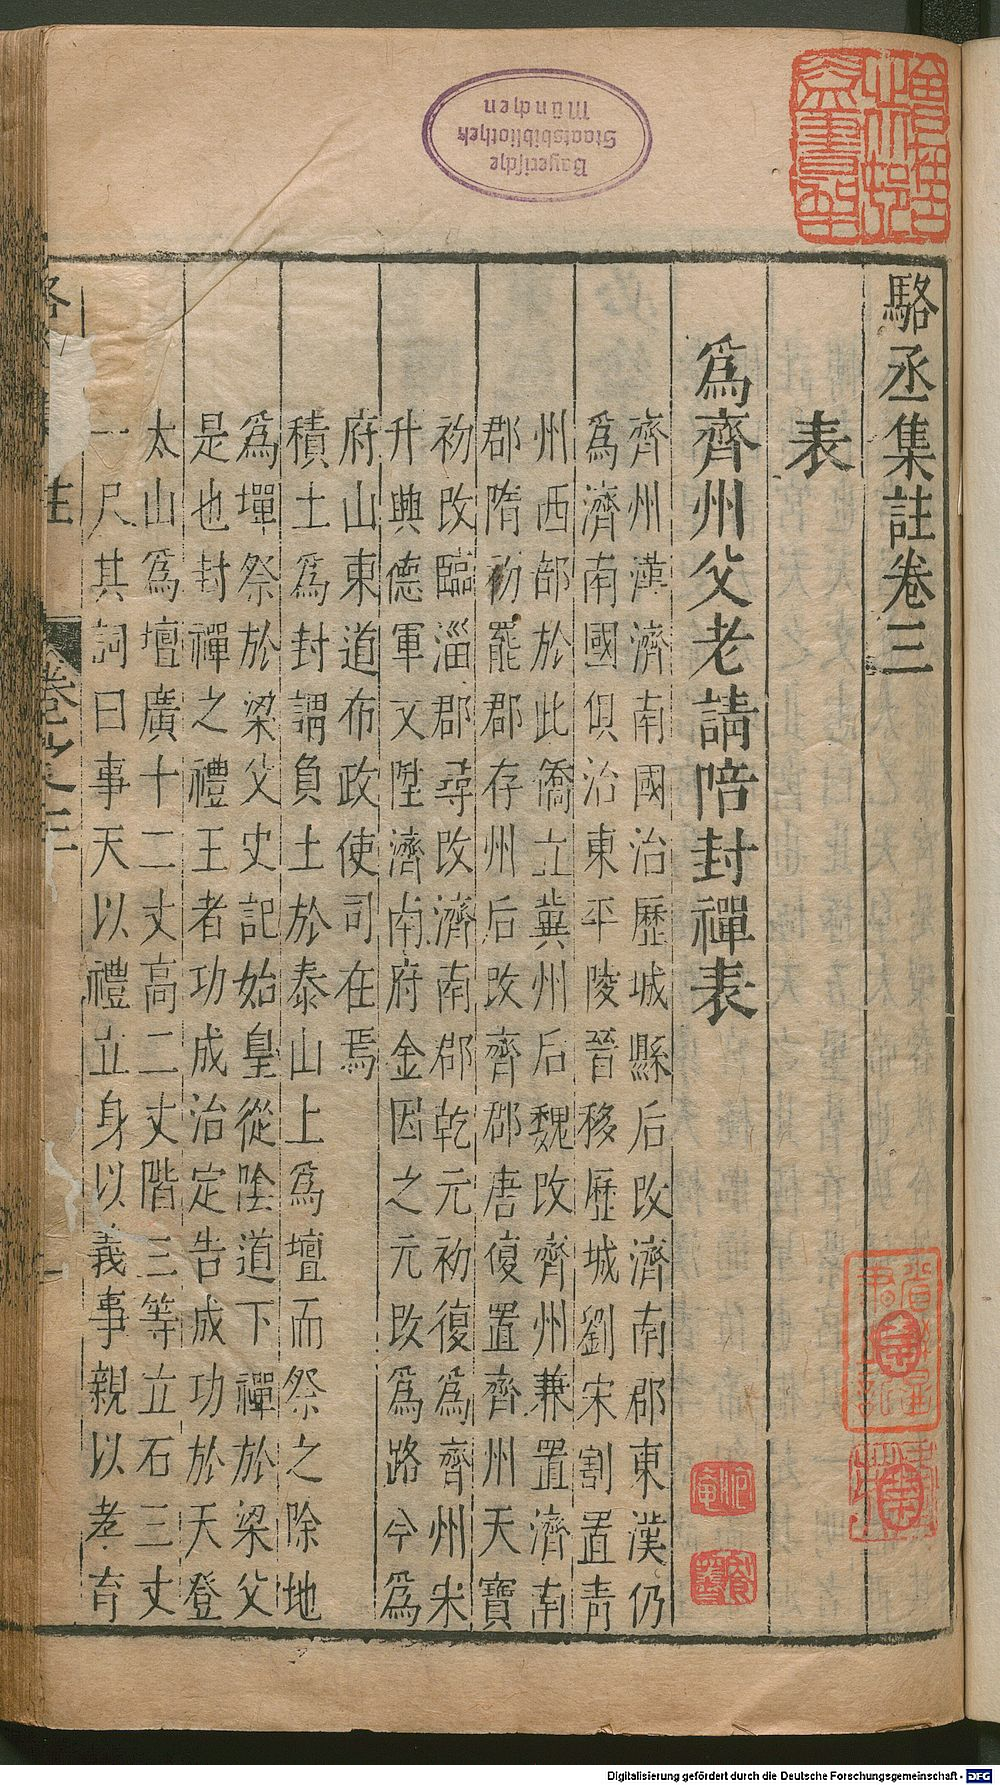 駱丞集註卷三
表
爲齊州父老請陪封禪表
齊州漢濟南國治歷城縣后改濟南郡東漢仍
爲濟南國俱治東平陵晉移歷城劉宋割置青
州西部於此僑立冀州后魏改齊州兼置濟南
郡隋初罷郡存州后改齊郡唐復置齊州天寶
初改臨淄郡尋改濟南郡乾元初復爲齊州宋
升興德軍又陞濟南府金因之元改爲路今爲
府山東道布政使司在焉
積土爲封謂負土於泰山上爲壇而祭之除地
爲墠祭於梁父史記始皇從陰道下禪於梁父
是也封禪之禮王者功成治定告成功於天登
太山爲壇廣十二丈高二丈階三等立石三丈
一尺其詞曰事天以禮立身以義事親以孝育
Bayerische
Staatsbibliothek
München
Digitalisierung gefördert durch die Deutsche Forschungsgemeinschaft - DFG